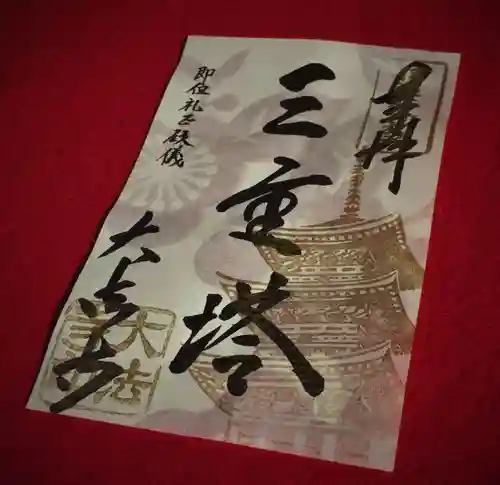 奉拝
三重塔
即位礼正殿儀
大法寺